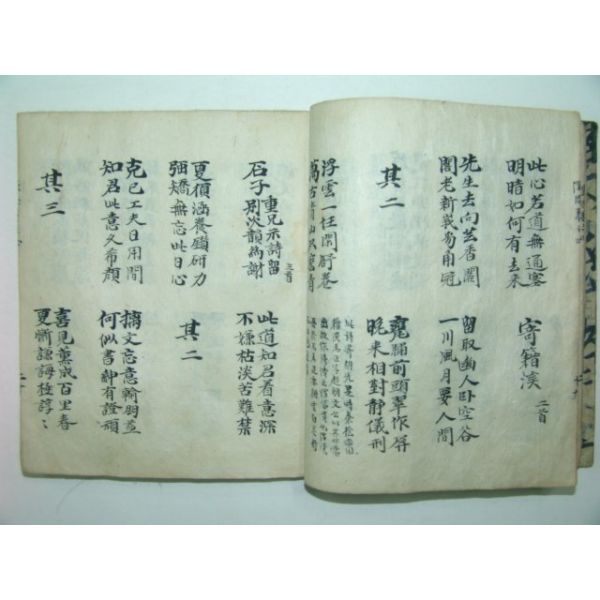 此心若道無通塞
明時如何有去來
寄籍溪 二首
先生去向芸香閣
閣老新峩豸角冠
留取幽人卧空谷
一川風月要人間
其二
甕牖前頭翠作屏
晚來相對靜儀刑
浮雲一任閑舒卷
萬古青山只麽青
石子重兄示詩留別次韻為謝 三首
此道知君着意深
不嫌枯淡苦難禁
更須涵養鑽研力
强矯無忘此日心
其二
克己工夫日用間
知君此意久希顔
摛文忘意輸朋益
何似書紳有證頑
其三
喜見薰成百里春
更慚謙誨極諄〻